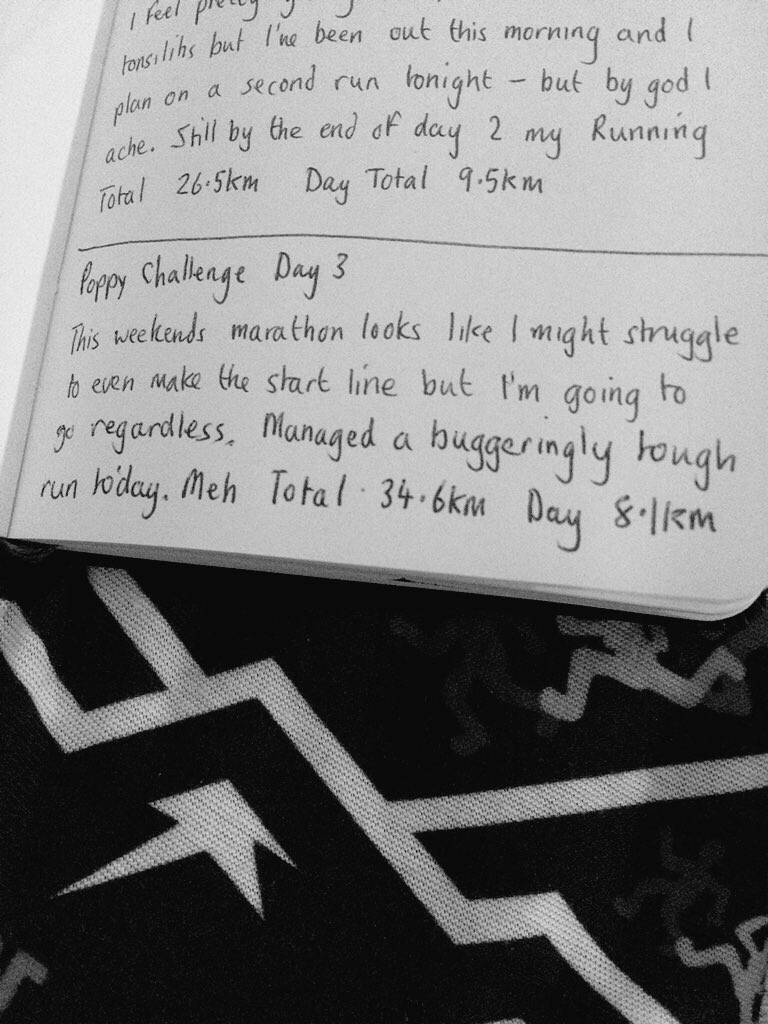 I feel pretty
tonsilitis but I've been out this morning and I
plan on a second run tonight – but by god I
ache. Still by the end of day 2 my Running
Total 26.5km Day Total 9.5km
Poppy Challenge Day 3
This weekends marathon looks like I might struggle
to even make the start line but I'm going to
go regardless. Managed a buggeringly tough
run today. Meh Total 34.6km Day 8.1km